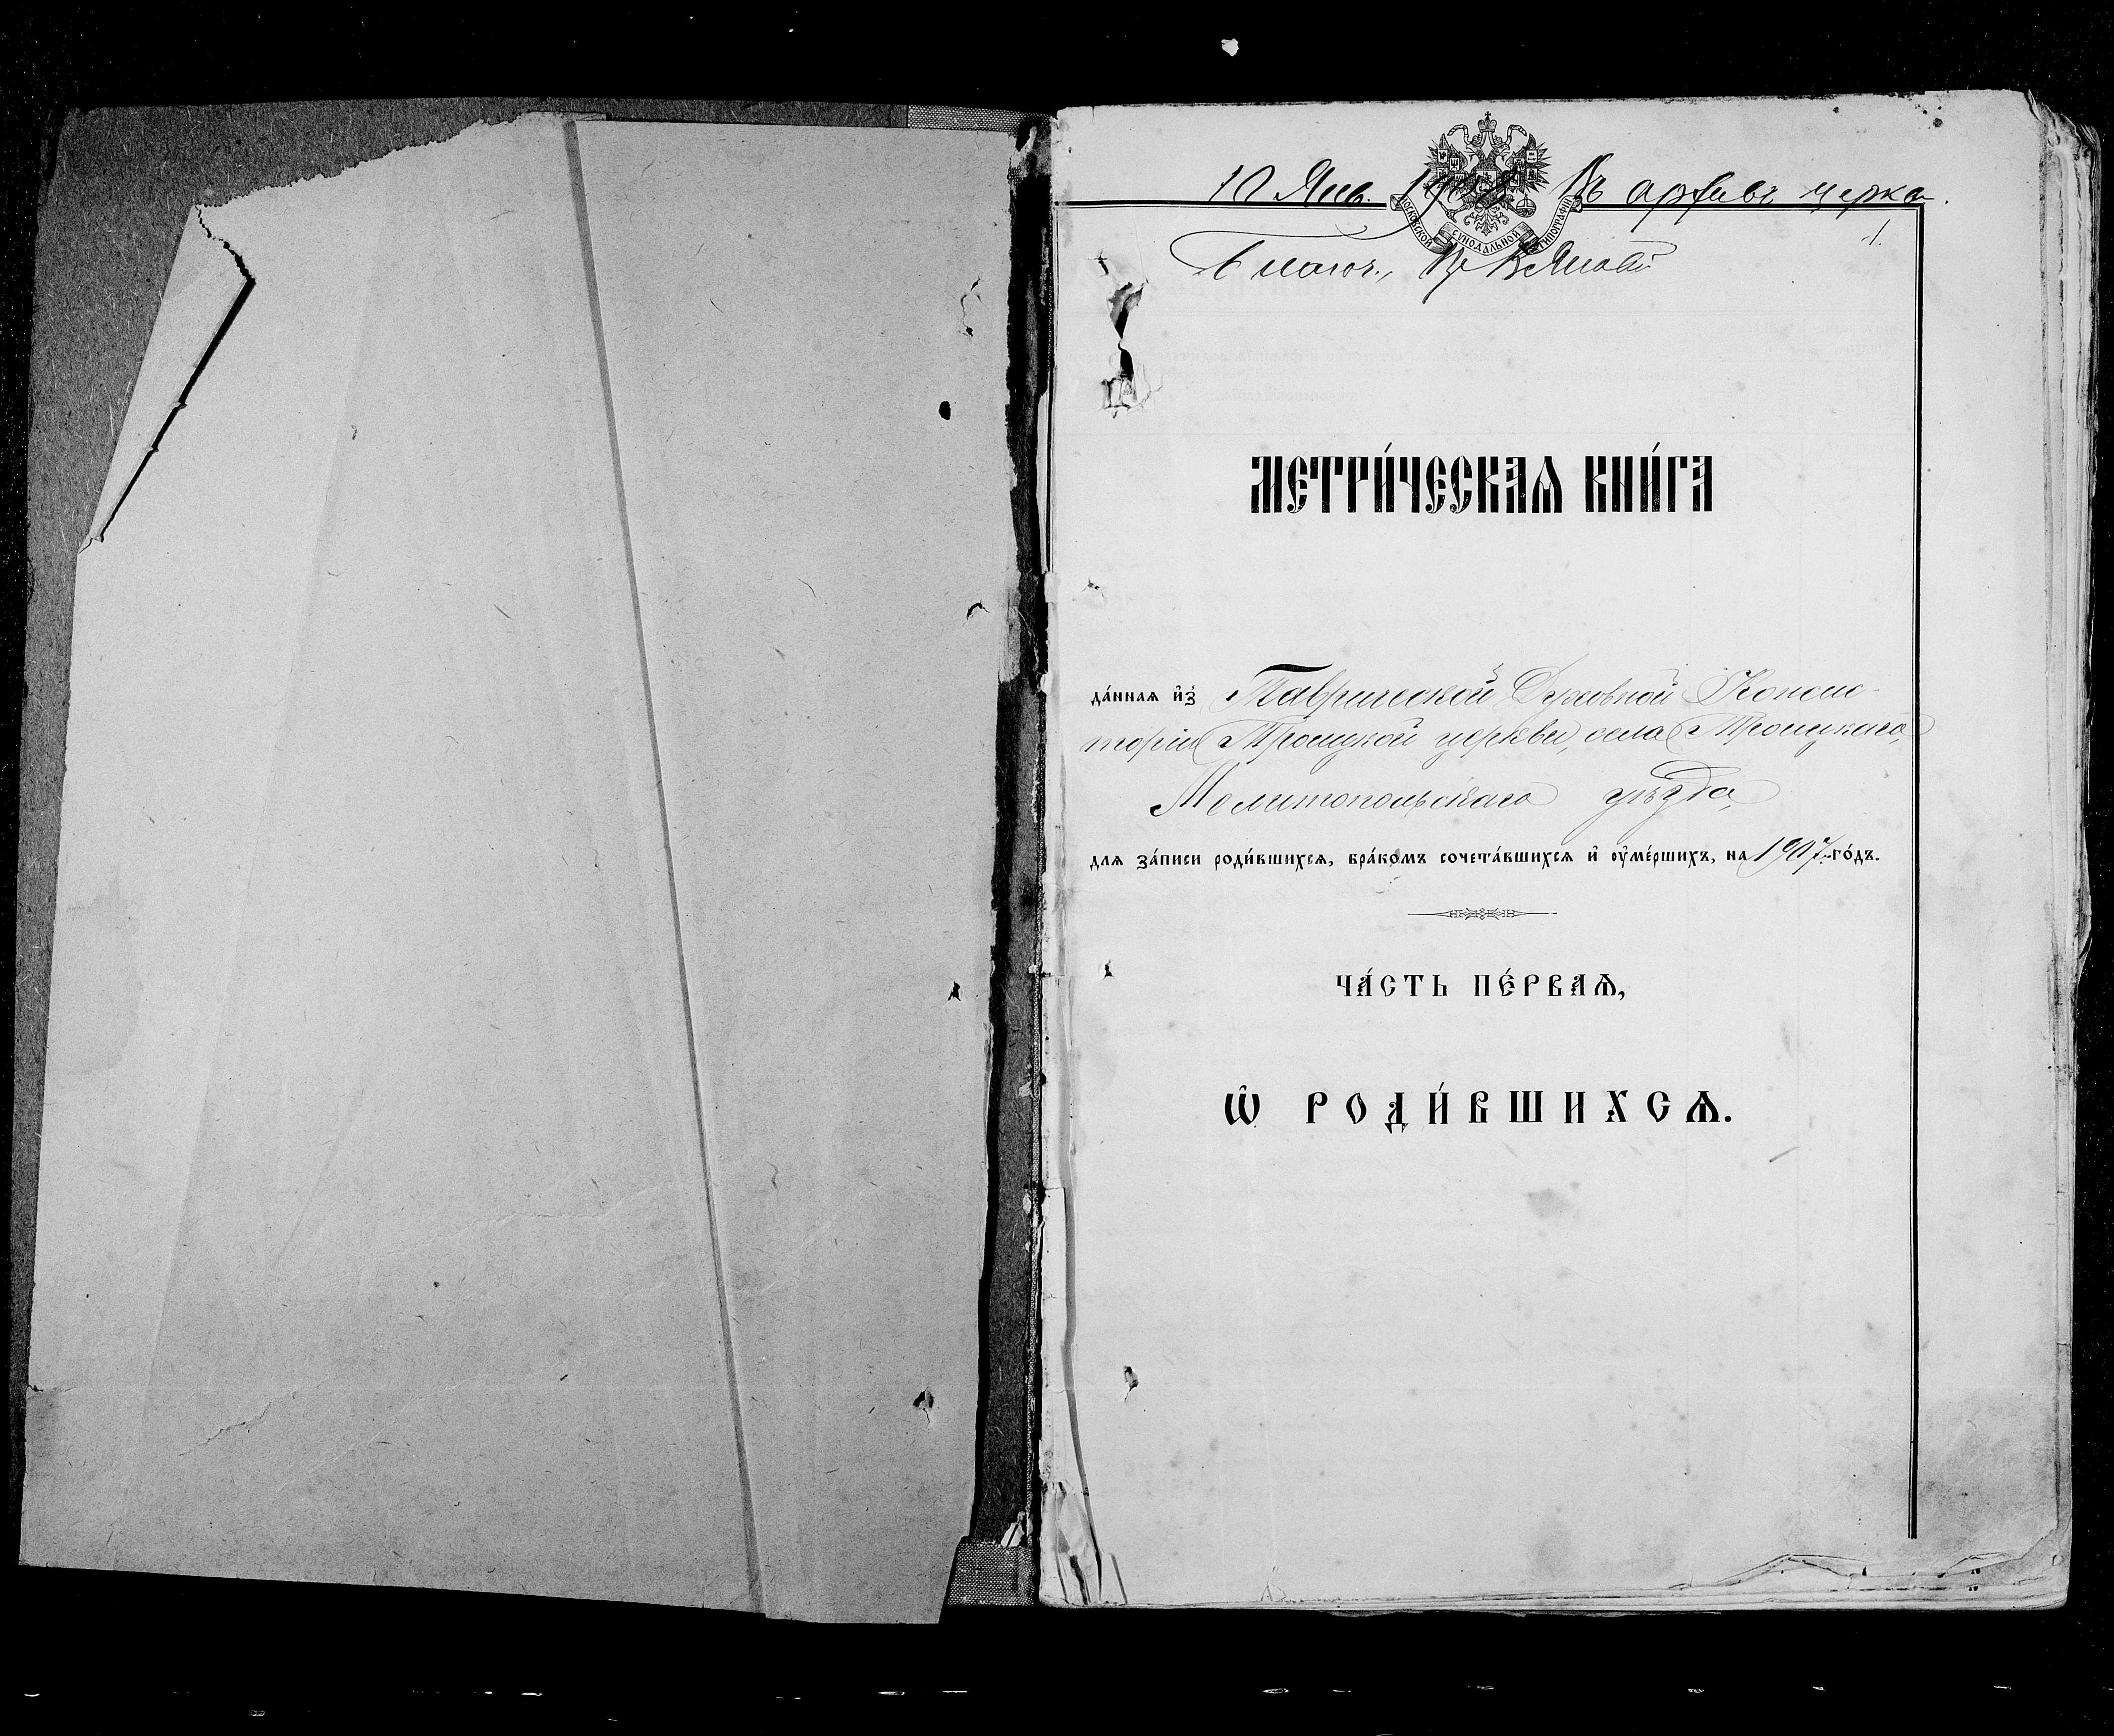 10 Янв. 1908 Въ архивъ церкв.
1.
Благоч.,
МОСКОВСКОЙ СѴНОДАЛЬНОЙ ТИПОГРАФІИ
МЕТРИ́ЧЕСКАѦ КНИ́ГА
да́нная и҆з̾ Таврической Духовной Консис-
торіи Троицкой церкви, села Троицкаго,
Мелитопольскаго уѣзда,
для за́писи роди́вшихсѧ, бра́комъ сочета́вшихсѧ и҆ ᲂу҆ме́ршихъ, на 1907 го́дъ.
ЧА́СТЬ ПЕ́РВАѦ,
Ѽ РОДИ́ВШИХСѦ.